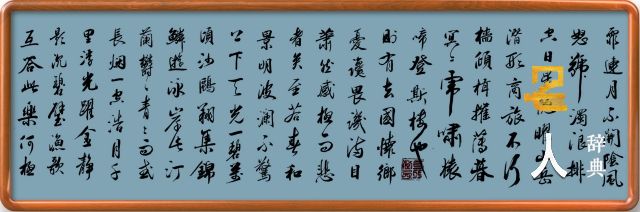 霏連月不開陰風
怒號濁浪排
空日星隱曜山岳
潛形商旅不行
檣傾楫摧薄暮
冥冥虎嘯猿
啼登斯樓也
則有去國懷鄉
憂讒畏譏滿目
蕭然感極而悲
者矣至若春和
景明波瀾不驚
上下天光一碧萬
頃沙鷗翔集錦
鱗游泳岸芷汀
蘭鬱鬱青青而或
長烟一空皓月千
里浮光躍金靜
影沉璧漁歌
互答此樂何極
人
辞典